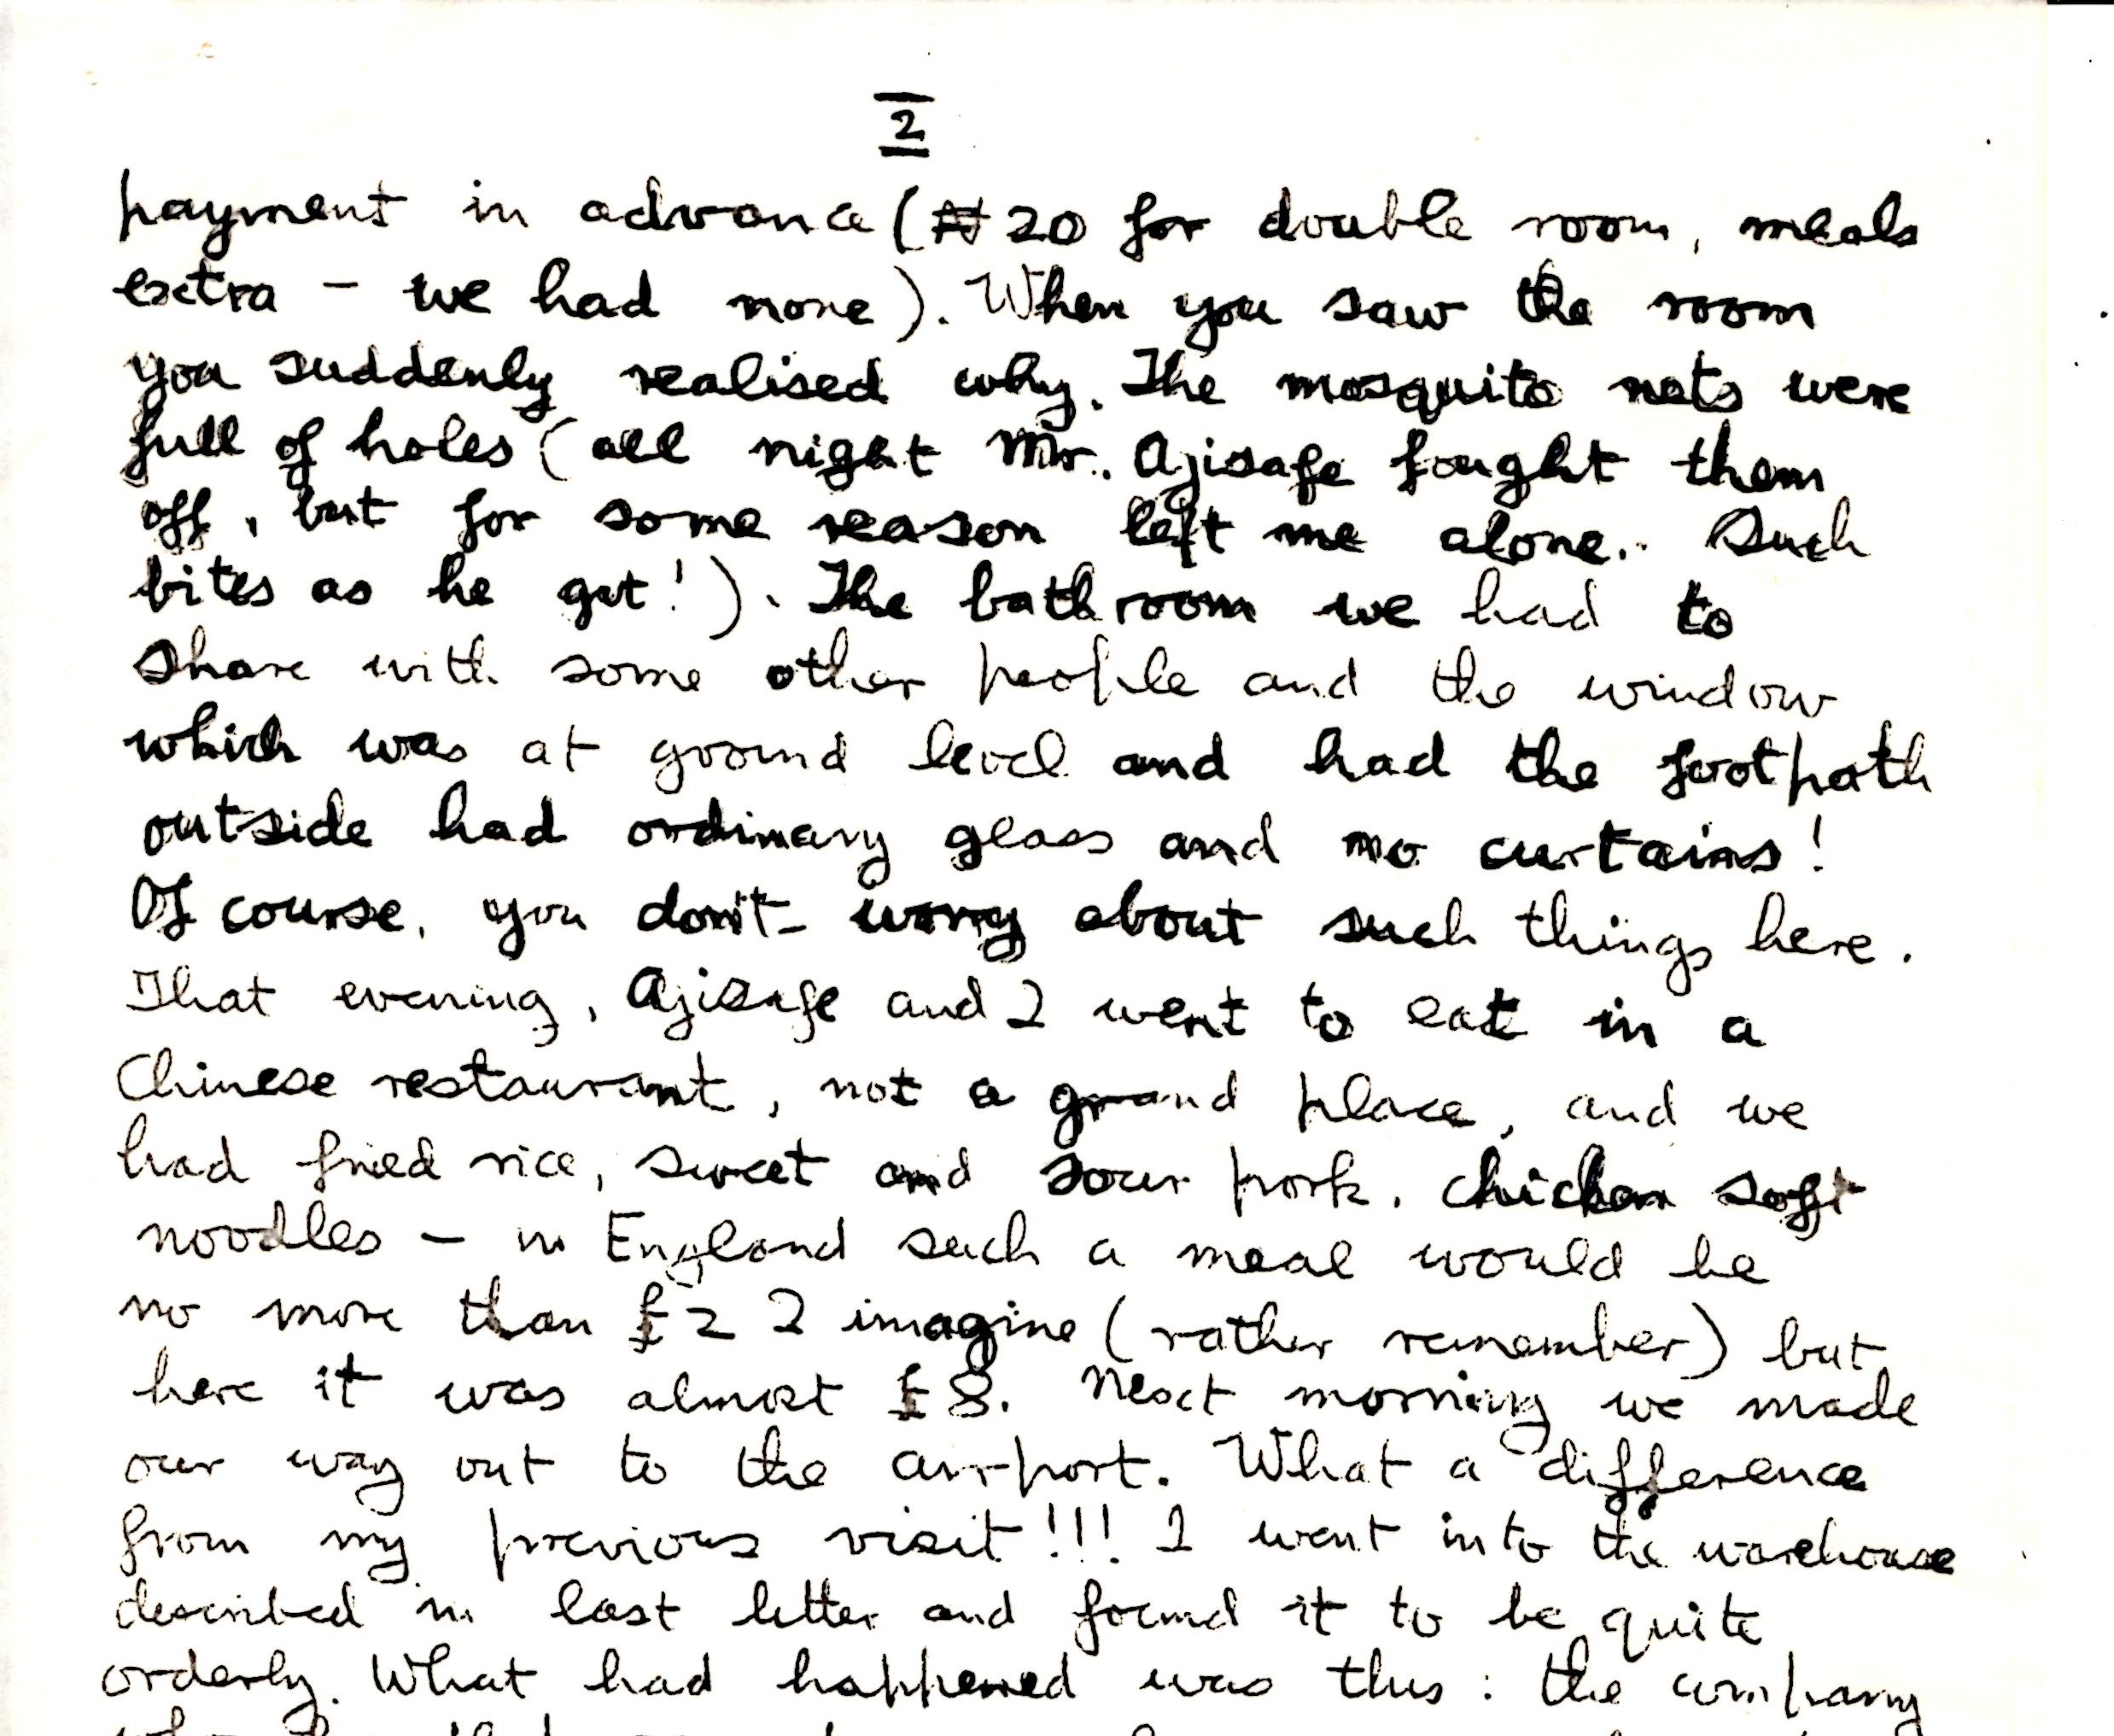 2
payment in advance (₦20 for double room, meals
extra - we had none). When you saw the room
you suddenly realised why. The mosquito nets were
full of holes (all night Mr. Ajisafe fought them
off, but for some reason left me alone.. Such
bites as he got!). The bathroom we had to
share with some other people and the window
which was at ground level and had the footpath
outside had ordinary glass and no curtains!
Of course, you don't worry about such things here.
That evening, Ajisafe and I went to eat in a
Chinese restaurant, not a grand place, and we
had fried rice, sweet and sour pork, chicken soft
noodles - in England such a meal would be
no more than £2 I imagine (rather remember) but
here it was almost £8. Next morning we made
our way out to the airport. What a difference
from my previous visit!!! I went into the warehouse
described in last letter and found it to be quite
orderly. What had happened was thus: the company